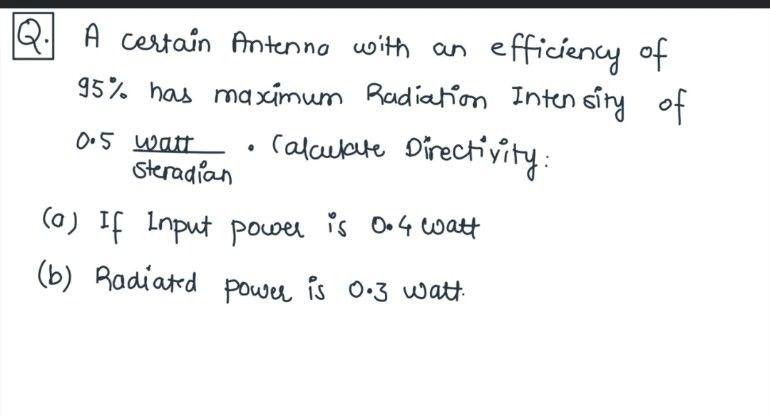 Q. A certain Antenna with an efficiency of
95% has maximum Radiation Intensity of
0.5 watt/steradian. Calculate Directivity:
(a) If Input power is 0.4 watt
(b) Radiated power is 0.3 watt.